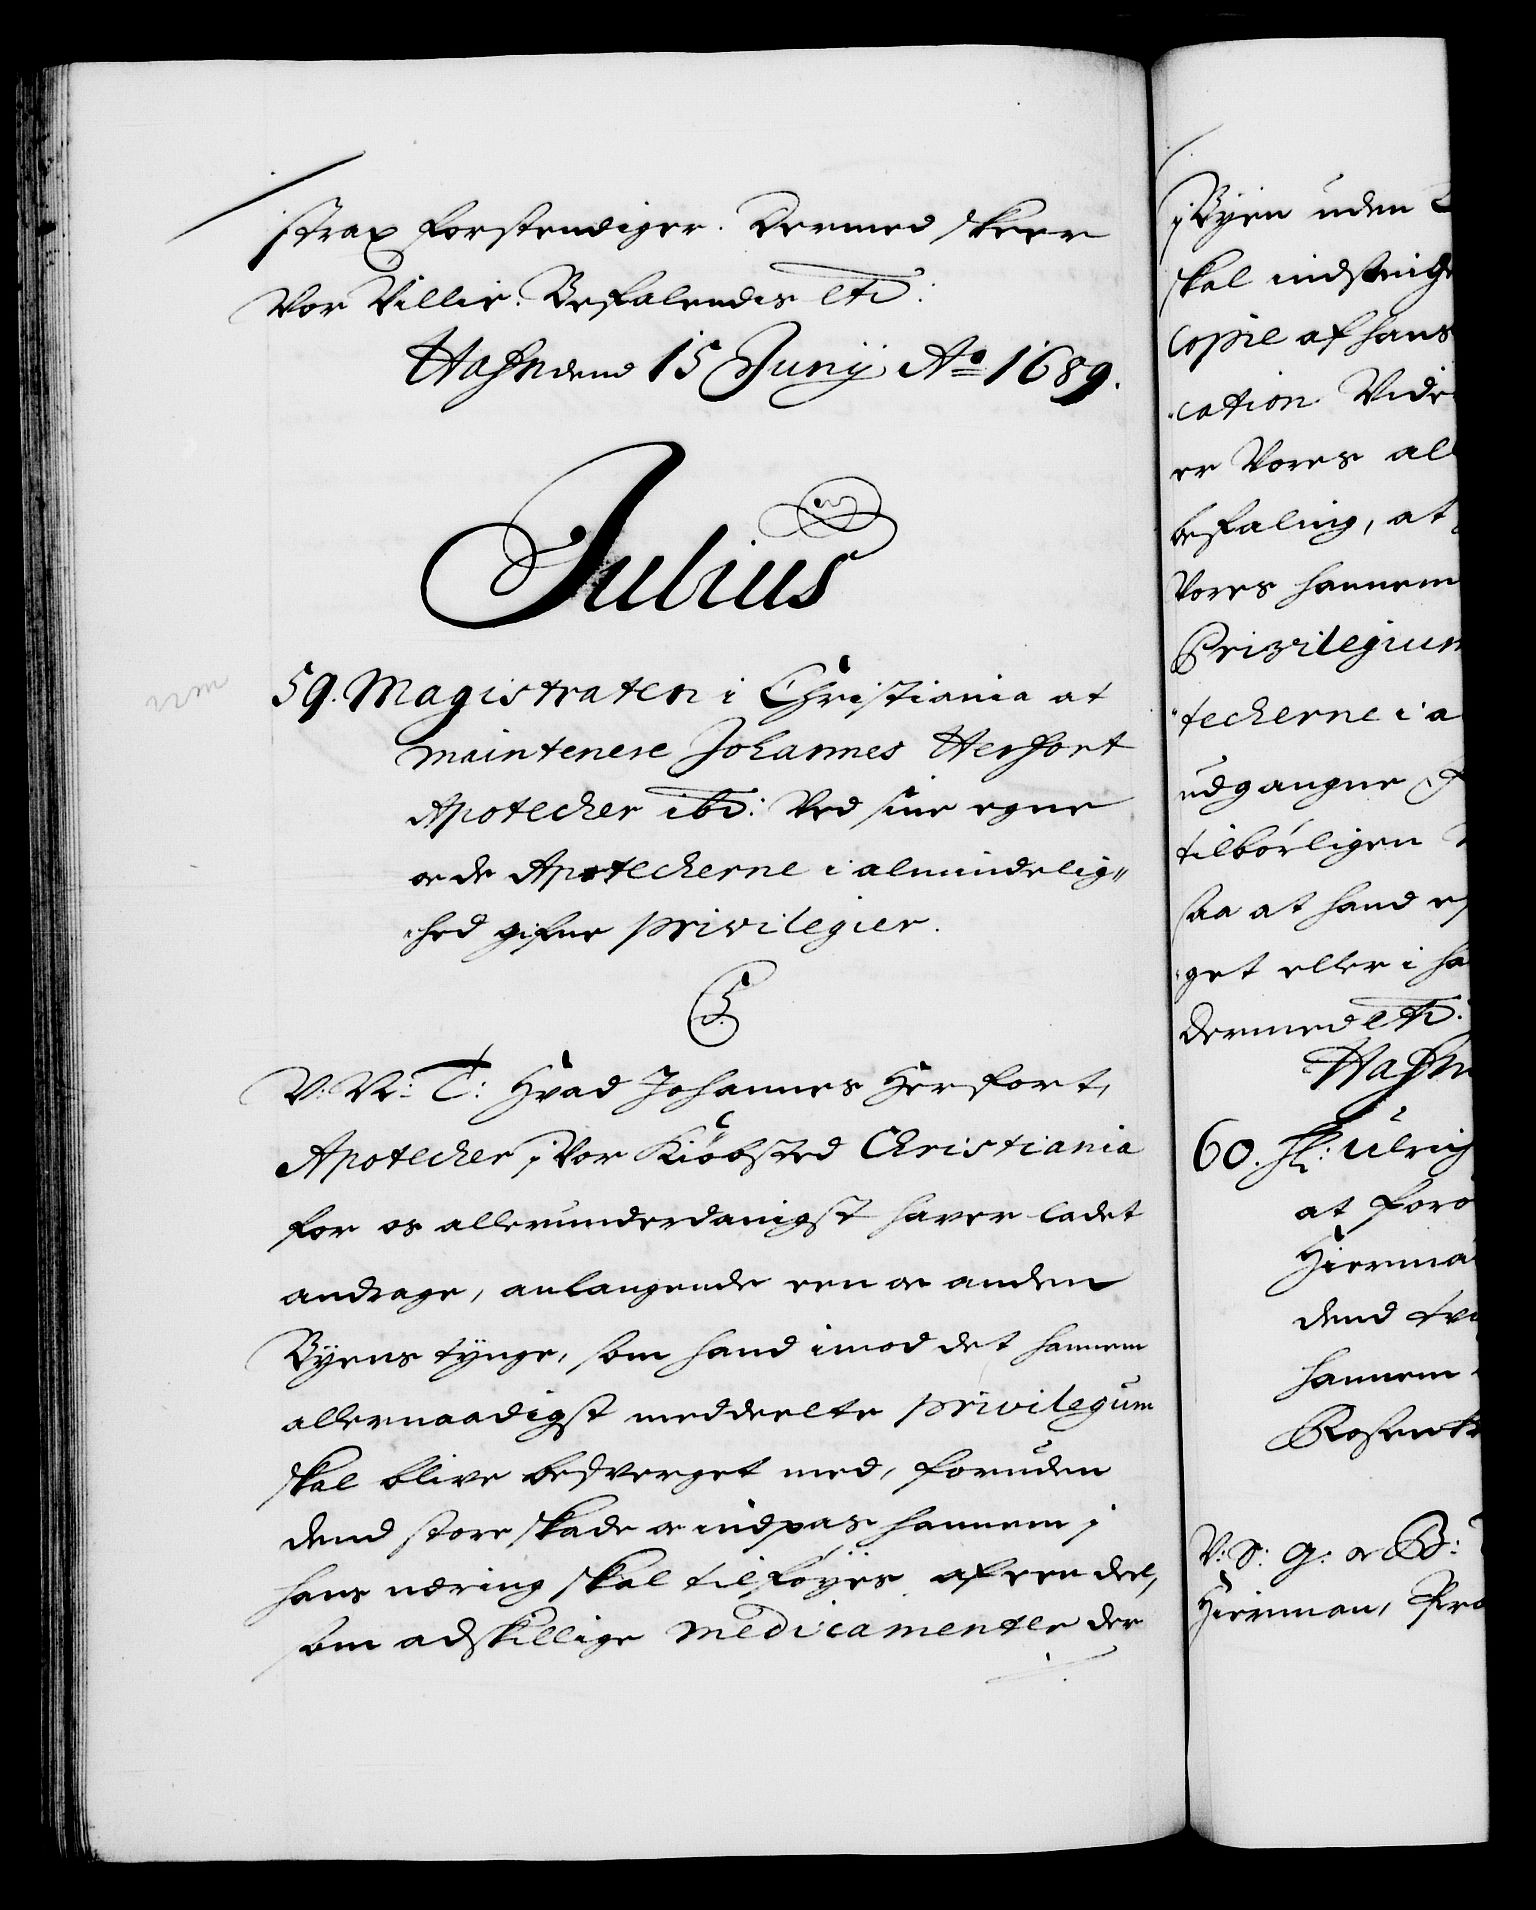 strax forstendiger. Dermed skeer
Vor Villie. Befalendis etc:
Hafn dend 15 Junij Ao 1689.
Julius
59. Magistraten i Christiania at
maintenere Johannes Herfort
Apotecker ibd: Ved sine egne
oc de Apoteckerne i almindelig"
"hed gifne privilegier.
C5.
V: V: T: Hvad Johannes Herfort,
Apotecker i Vor Kiøbsted Christiania
for os allerunderdanigst haver ladet
andrage, anlangende een oc anden
Byens tynge, som hand imod det hannem
allernaadigst meddeelte privilegium
skal blive besverget med, foruden
dend store skade oc indpas hannem i
hans næring skal tilføyes af een deel,
som adskillige medicamenter der
i Byen uden
skal indstinge
copie af hans
"cation. Vide
er Vores all
befaling, at
Vores hannem
Privilegium
"teckerne i a
udgangne
tilbørligen
saa at hand
"get eller i ha
Dermed etc:
Hafn
60. Hr: Ulrich
at foro
Hierman
dend tvi
hannem
Rosenkr
V: S: G: oc B:
Hierman, Pro